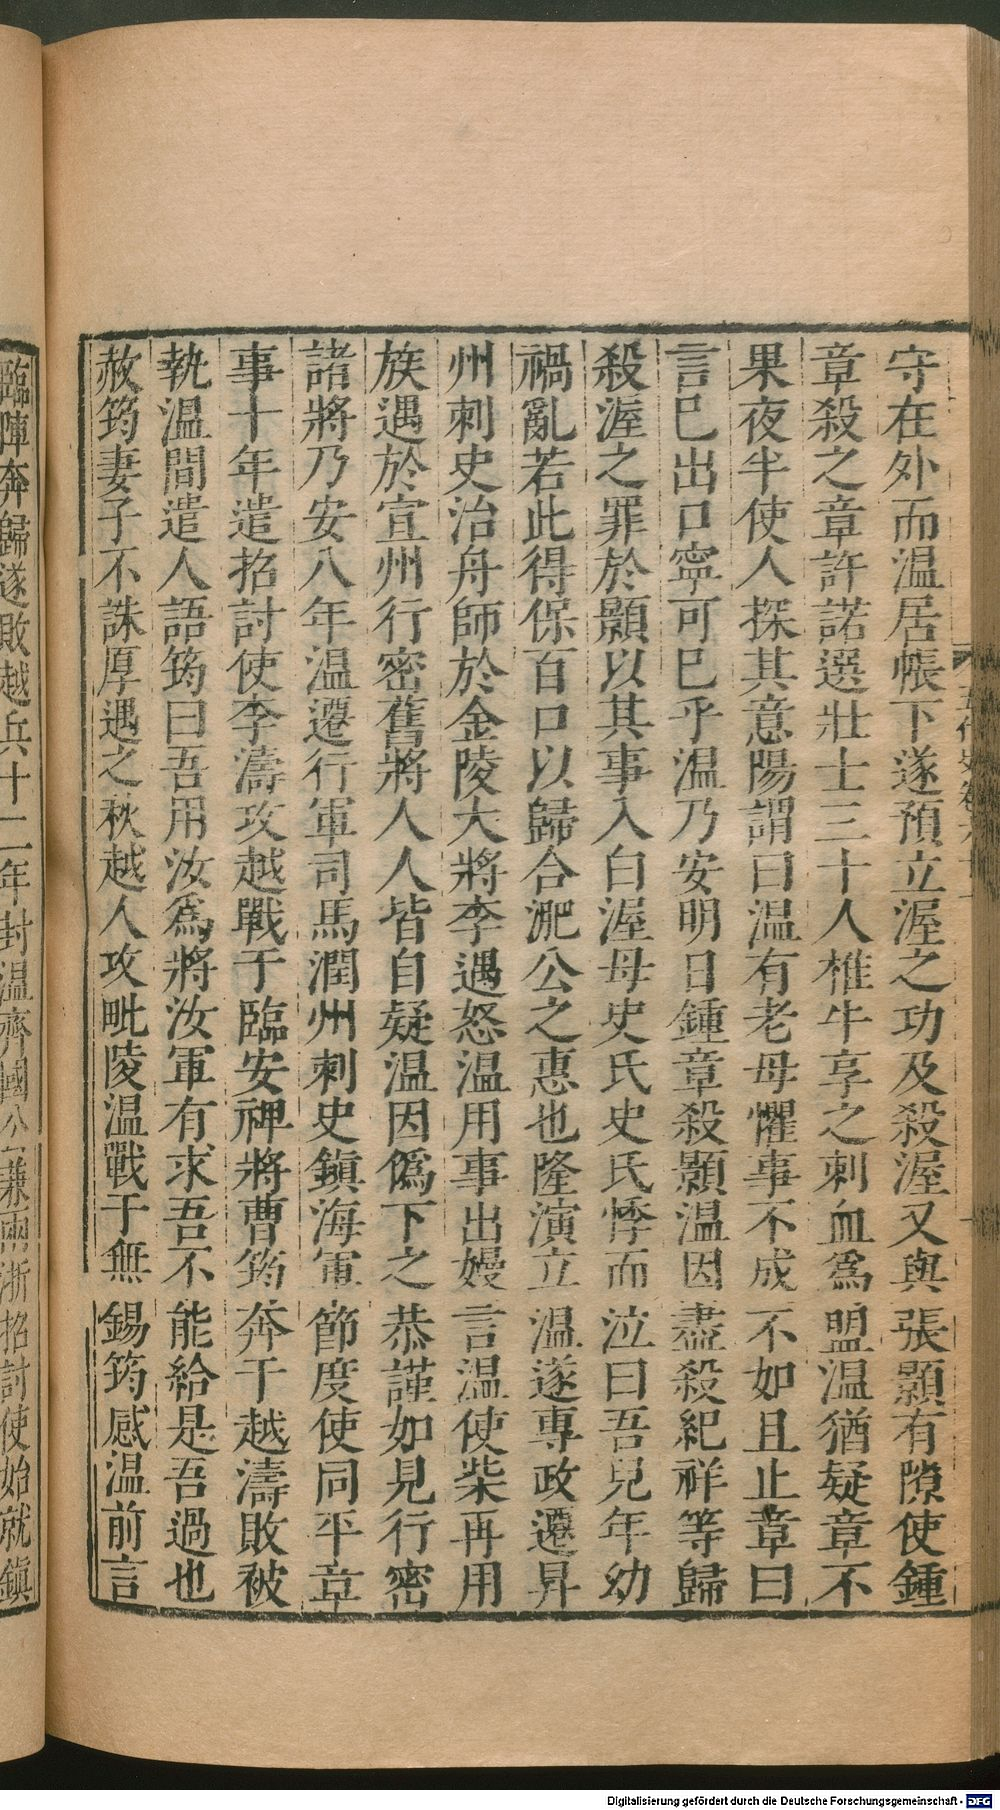 守在外而温居帳下遂預立渥之功及殺渥又與張顥有隙使鍾
章殺之章許諾選壯士三十人椎牛享之刺血爲盟温猶疑章不
果夜半使人探其意陽謂曰温有老母懼事不成不如且止章曰
言已出口寧可已乎温乃安明日鍾章殺顥温因盡殺紀祥等歸
殺渥之罪於顥以其事入白渥母史氏史氏悸而泣曰吾兒年幼
禍亂若此得保百口以歸合淝公之惠也隆演立温遂專政遷昇
州刺史治舟師於金陵大將李遇怒温用事出嫚言温使柴再用
族遇於宣州行密舊將人人皆自疑温因僞下之恭謹如見行密
諸將乃安八年温遷行軍司馬潤州刺史鎭海軍節度使同平章
事十年遣招討使李濤攻越戰于臨安裨將曹筠奔于越濤敗被
執温間遣人語筠曰吾用汝爲將汝軍有求吾不能給是吾過也
赦筠妻子不誅厚遇之秋越人攻毗陵温戰于無錫筠感温前言
臨陣奔歸遂敗越兵十二年封温齊國公兼兩浙招討使始就鎭
五代史卷六十一
Digitalisierung gefördert durch die Deutsche Forschungsgemeinschaft - DFG